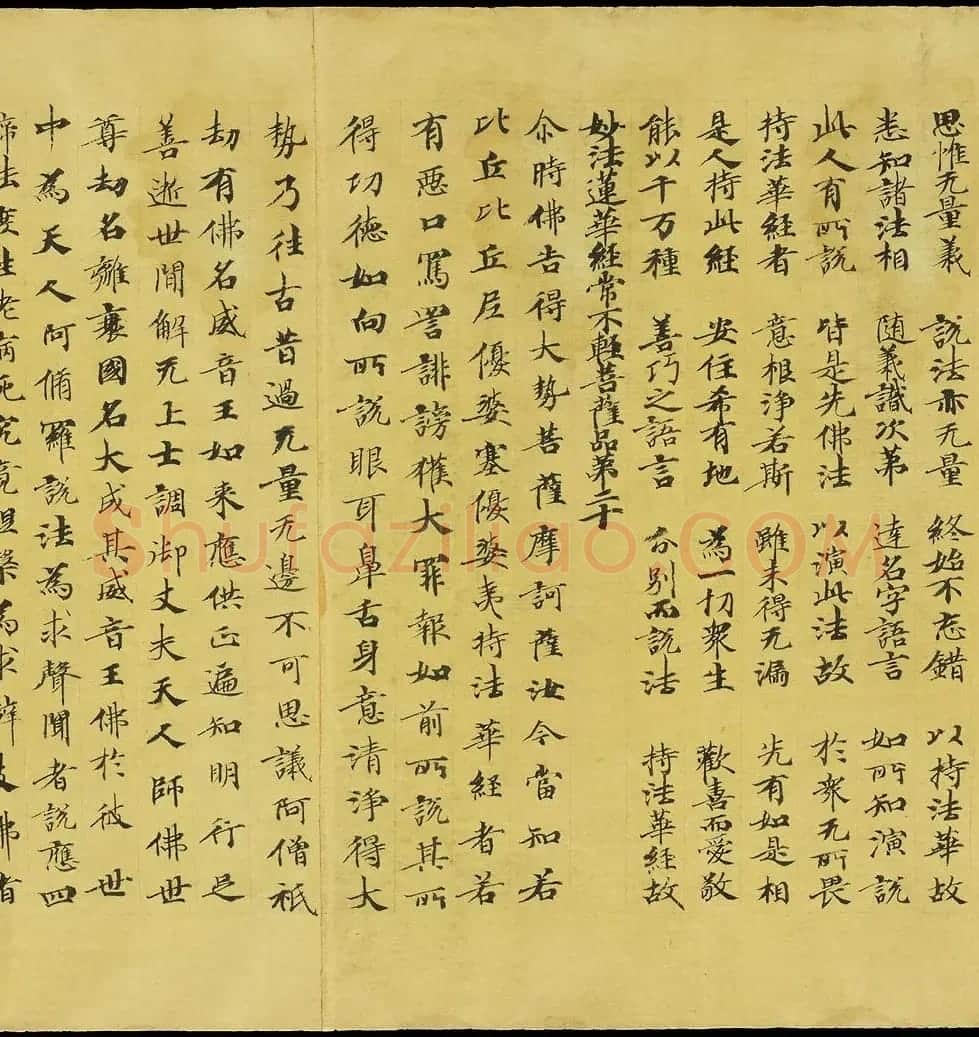 思惟无量義 說法亦无量 終始不忘錯 以持法華故
悉知諸法相 随義識次第 達名字語言 如所知演說
此人有所說 皆是先佛法 以演此法故 於衆无所畏
持法華經者 意根淨若斯 雖未得无漏 先有如是相
是人持此經 安住希有地 為一切衆生 歡喜而愛敬
能以千万種 善巧之語言 分别而說法 持法華經故
妙法蓮華經常不輕菩薩品第二十
尒時佛告得大勢菩薩摩訶薩汝今當知若
比丘比丘尼優婆塞優婆夷持法華經者若
有惡口罵詈誹謗獲大罪報如前所說其所
得功德如向所說眼耳鼻舌身意清淨得大
勢乃往古昔過无量无邊不可思議阿僧祇
劫有佛名威音王如来應供正遍知明行足
善逝世間解无上士調御丈夫天人師佛世
尊劫名離衰國名大成其威音王佛於彼世
中為天人阿脩羅說法為求聲聞者說應四
諦法度生老病死究竟涅槃為求辟支佛者
Shufaziliao.COM